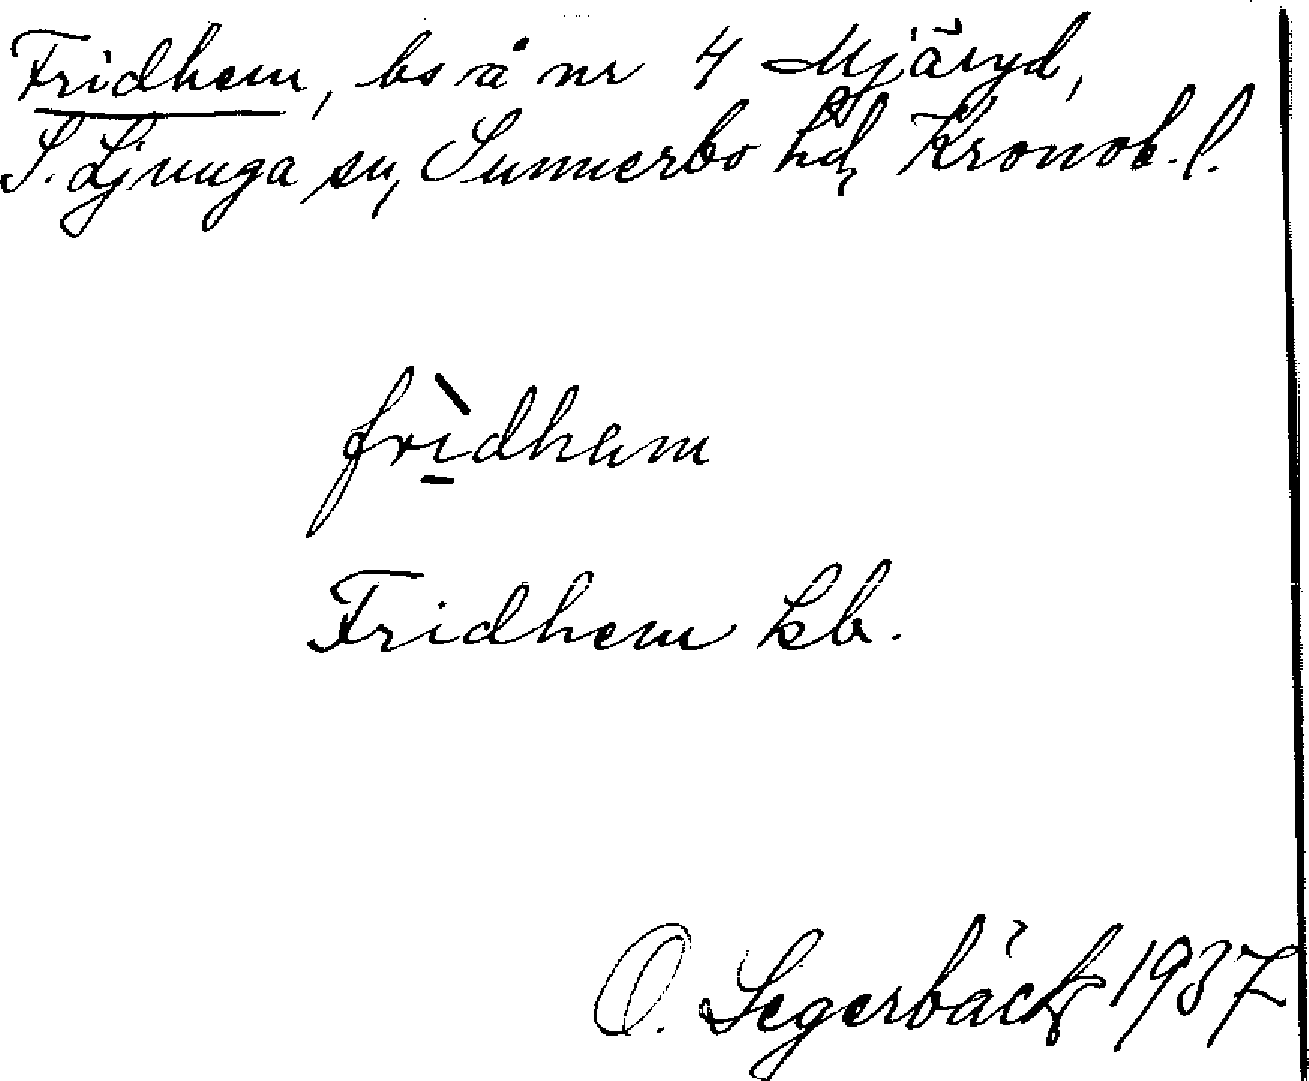 Fridhem, bs å nr 4 Mjäryd,
S. Ljunga sn, Sunnerbo hd, Kronob. l.
frìdhem
Fridhem kb.
O. Segerbäck 1937